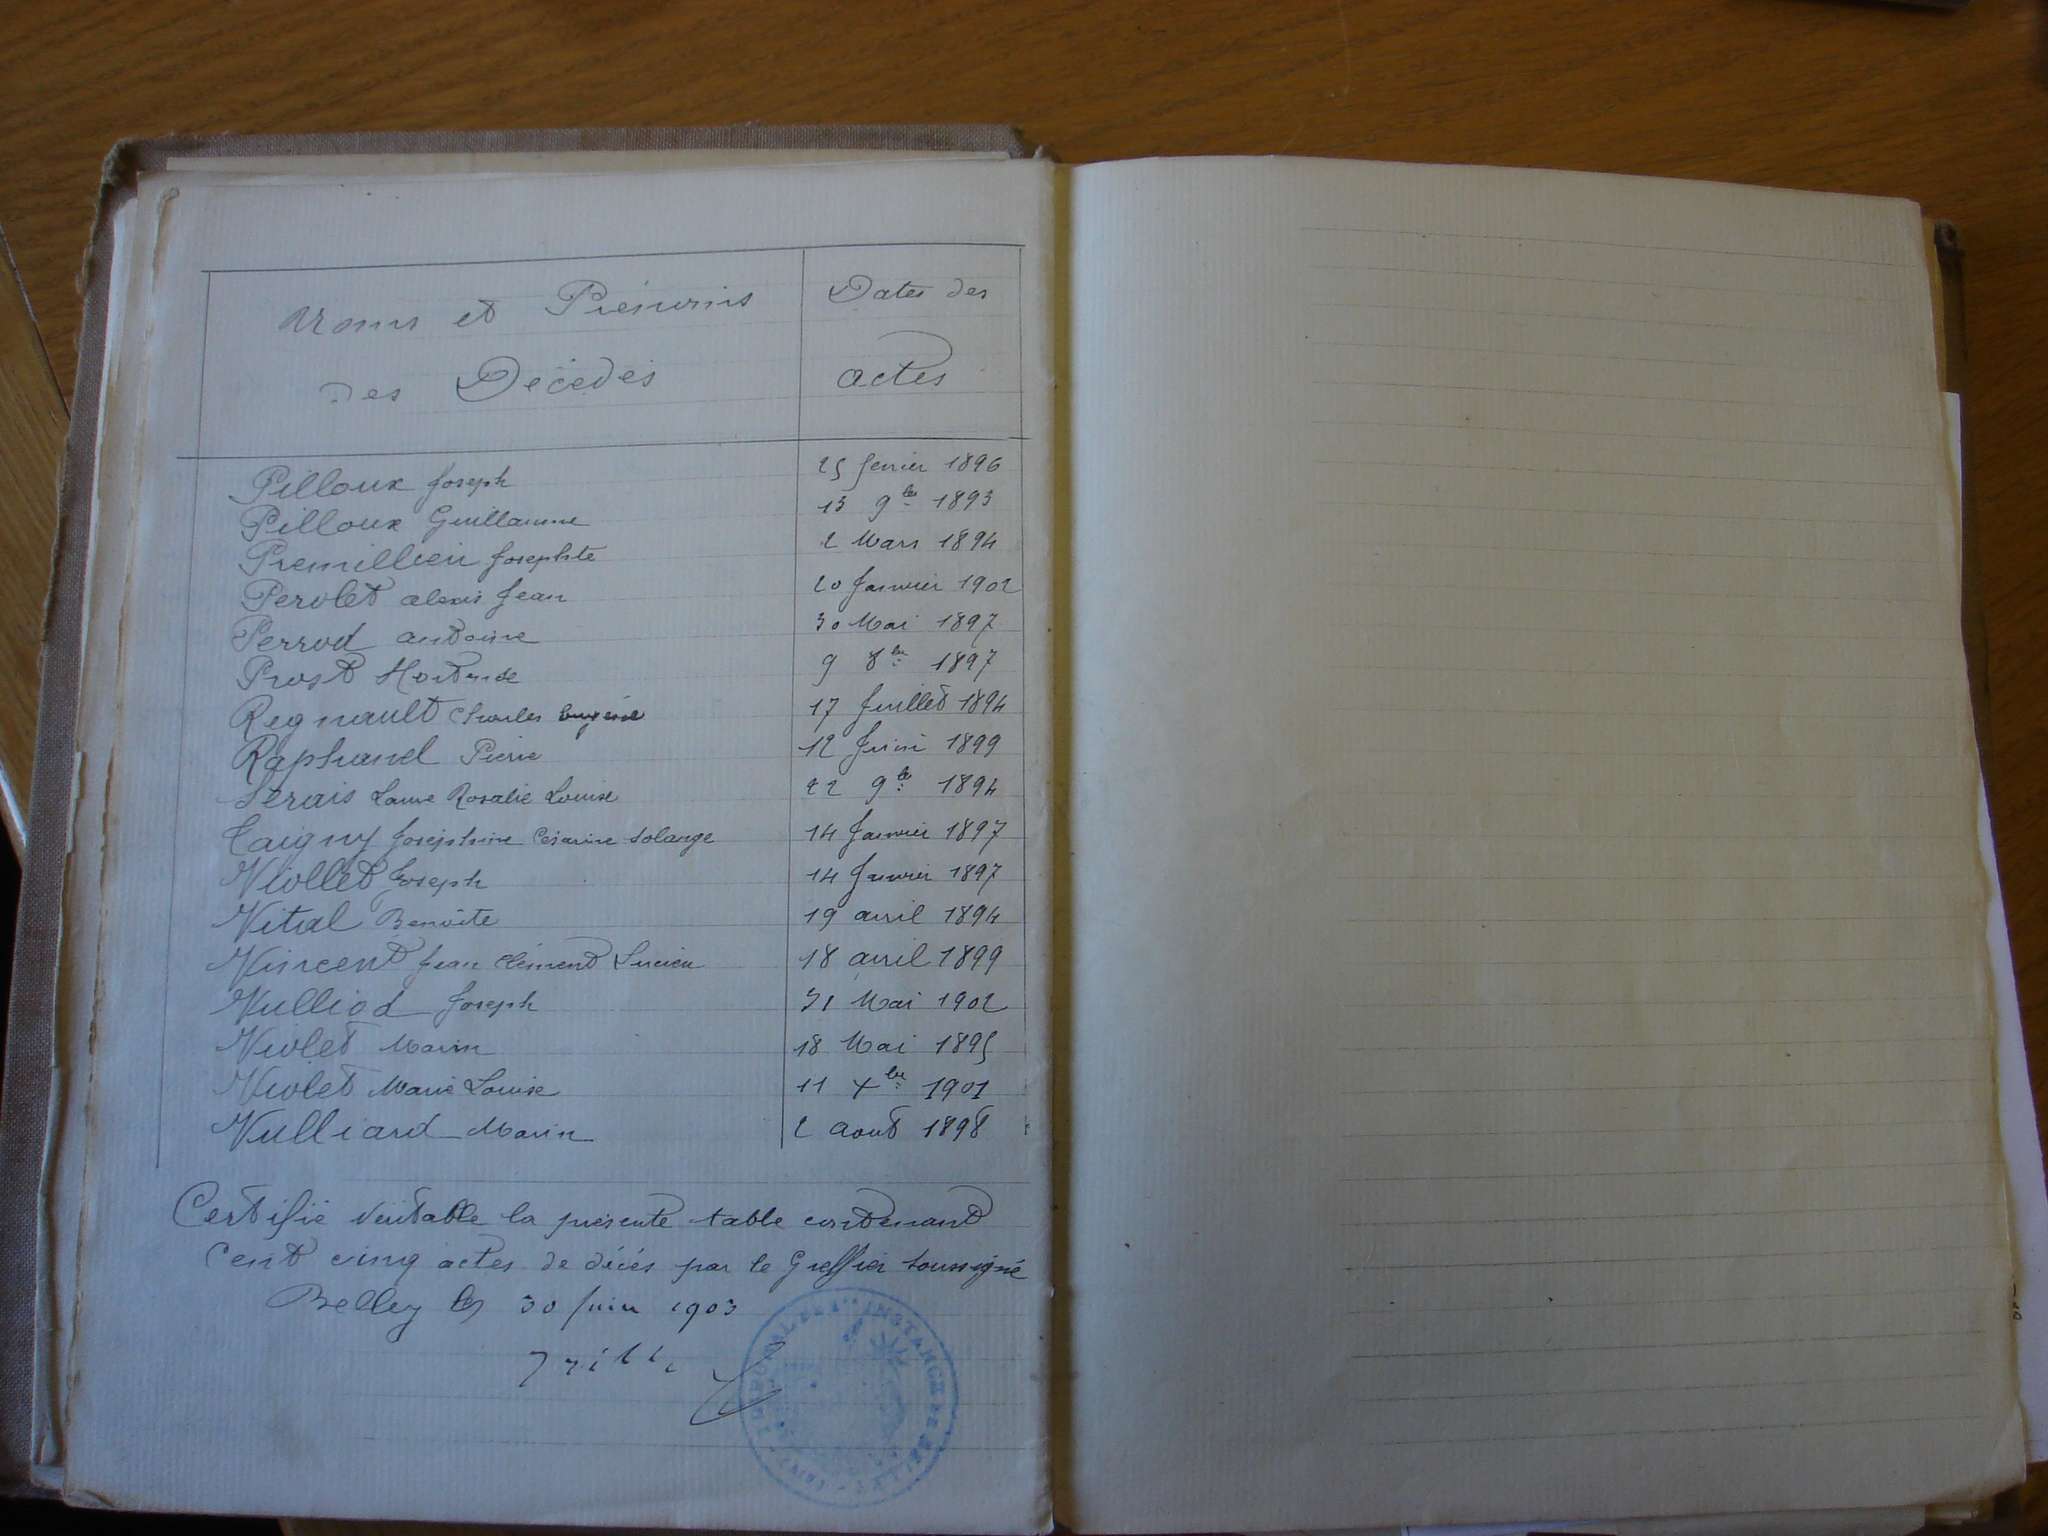 Noms et Prénoms
des Décédés
Dates des
actes
Pilloux Joseph 25 fevrier 1896
Pilloux Guillaume 13 9bre 1893
Premillieu Josephte 2 Mars 1894
Perolet alexis Jean 20 Janvier 1902
Perrod antoine 30 Mai 1897
Prost Hortense 9 8bre 1897
Regnault Charles Eugène 17 Juillet 1894
Raphanel Pierre 12 Juin 1899
Serais Laure Rosalie Louise 22 9bre 1894
Taigny Joséphine Césarine Solange 14 Janvier 1897
Viollet Joseph 14 Janvier 1897
Vital Benoite 19 avril 1894
Vincent Jean Clément Lucien 18 avril 1899
Vulliod Joseph 31 Mai 1902
Violet Marin 18 Mai 1895
Violet Marie Louise 11 Xbre 1901
Vulliard Marin 2 aout 1898
Certifié véritable la présente table contenant
cent cinq actes de décès par le Greffier soussigné
Belley le 30 Juin 1903
TRIBUNAL DE 1re INSTANCE DE BELLEY (AIN)